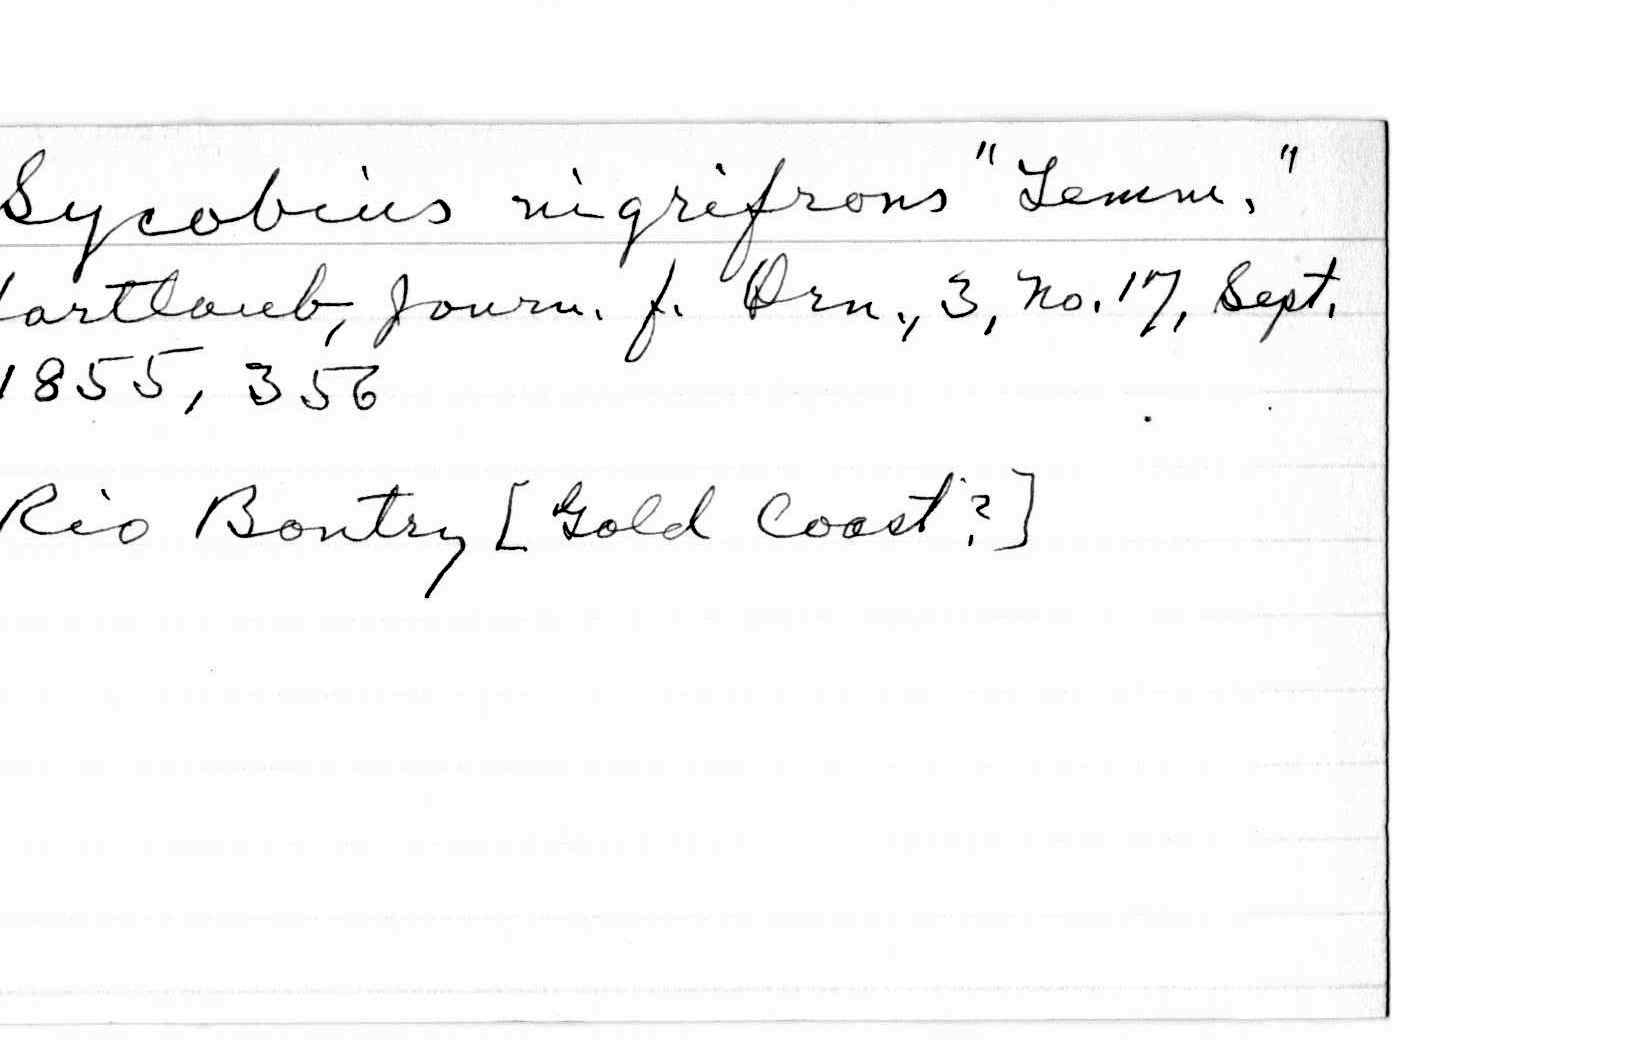 Sycobius nigrifrons "Temm."
Hartlaub, Journ. f. Orn., 3, No. 17, Sept.
1855, 356
Rio Bontry [Gold Coast?]